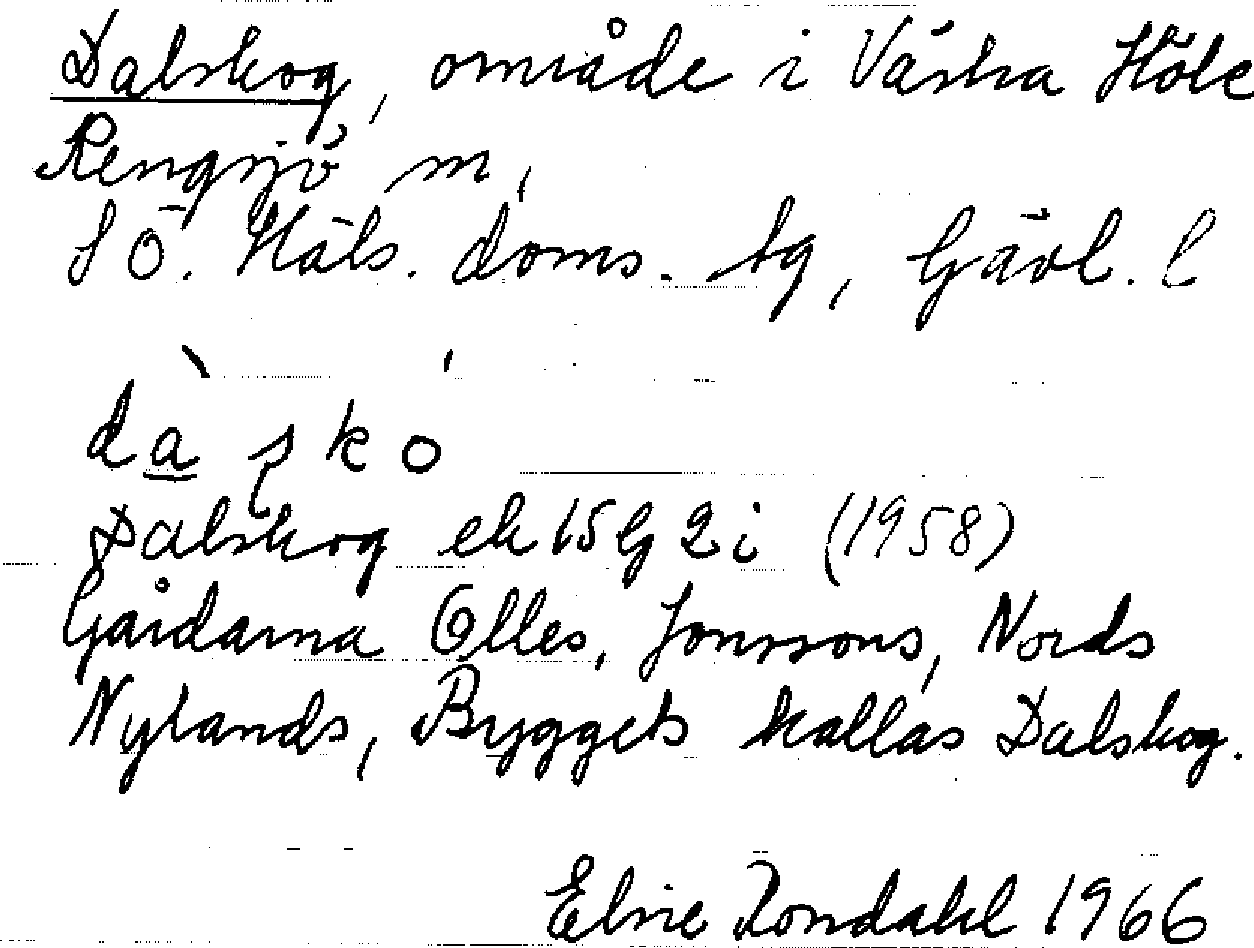 Dalskog, område i Västra Höle
Rengsjö sn,
SÖ. Häls. doms. tg, Gävl. l
dàʂkó
Dalskog ek 15G 2i (1958)
Gårdarna Olles, Jonssons, Nords
Nylands, Byggets kallas Dalskog.
Elsie Londahl 1966